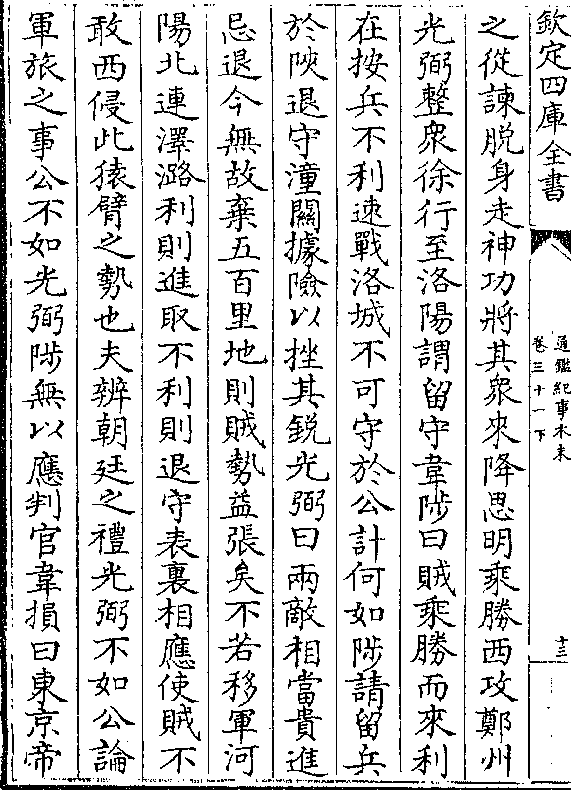 欽定四庫全書
通鑑紀事本末
卷三十一下
十三
之從諫脱身走神功將其衆來降思明乘勝西攻鄭州
光弼整衆徐行至洛陽謂留守韋陟曰賊乘勝而來利
在按兵不利速戰洛城不可守於公計何如陟請留兵
於陜退守潼關據險以挫其鋭光弼曰兩敵相當貴進
忌退今無故棄五百里地則賊勢益張矣不若移軍河
陽北連澤潞利則進取不利則退守表裏相應使賊不
敢西侵此猿臂之勢也夫辨朝廷之禮光弼不如公論
軍旅之事公不如光弼陟無以應判官韋損曰東京帝